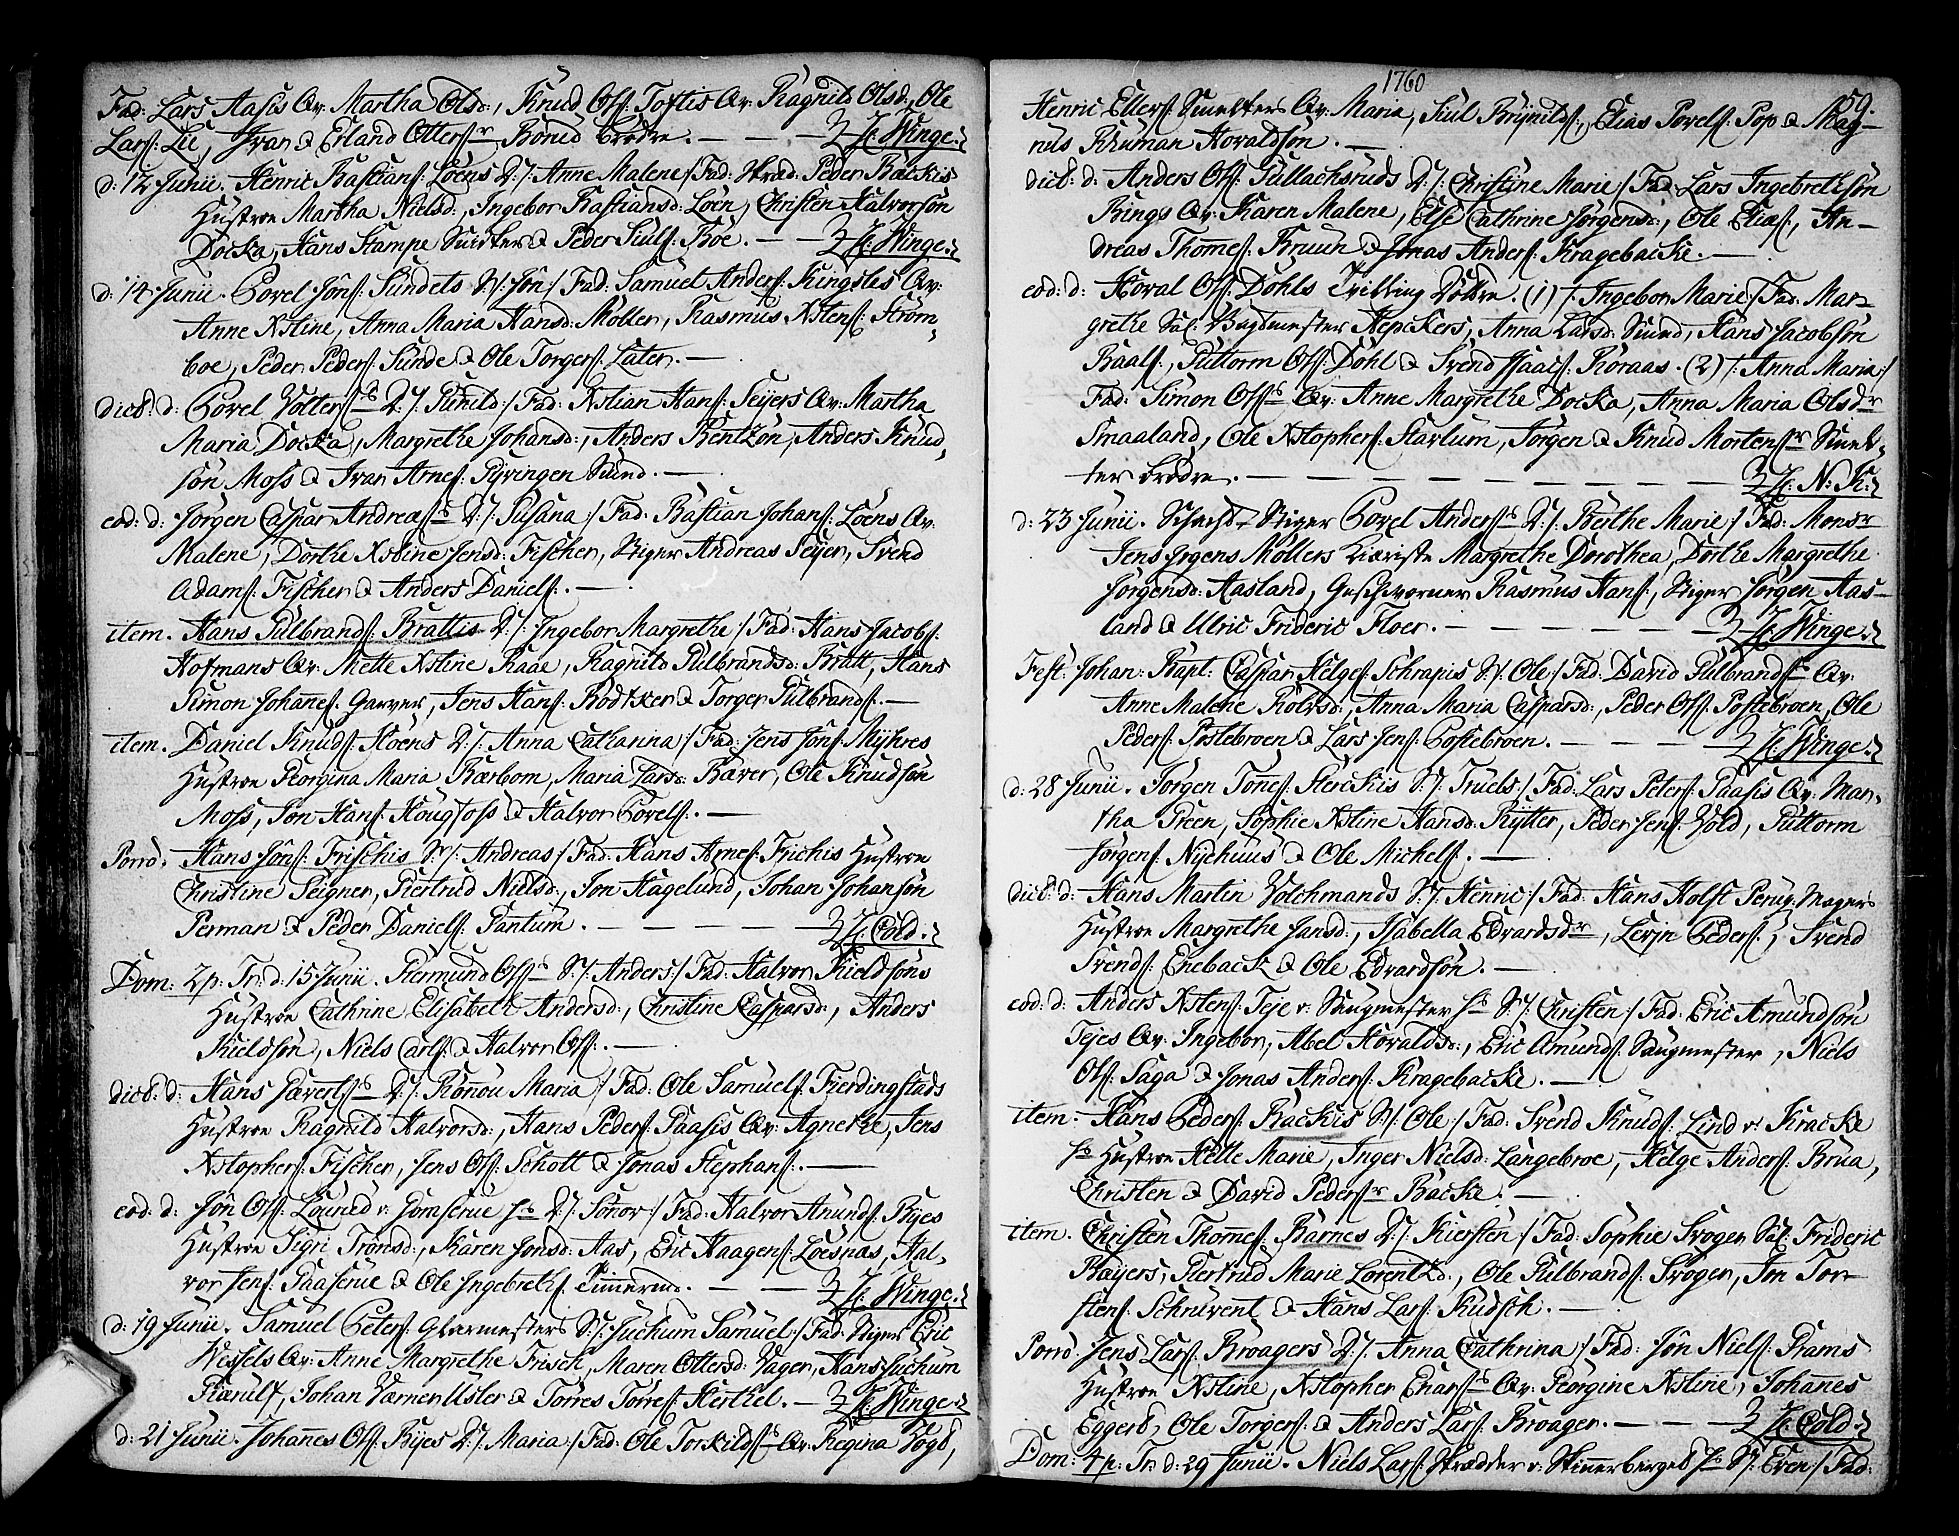 Fad: Lars Aasis Qv: Martha Olsd:, Knud Ols: Toftis Qv: Ragnild Olsd:, Ole
Lars: Lie, Ivar & Erland Otters:r Bonid brødre. — — — H: Winge.
d: 12 Junii. Henric Bastians: Loens D:/: Anne Malene / Fad: Peder Backis
Hustroe Martha Nielsd:, Ingebor Bastiansd: Loen, Christen Halvorsøn
Docka, Hans Stampe & Peder Siuls: Boe. — H: Winge.
d: 14 Junii. Povel Jøns: Sundets S:/: Jøn / Fad: Samuel Anders: Kingsles Qv:
Anne Xstine, Anna Maria Hansd: Møller, Rasmus Xstens: Strøm-
boe, Peder Peders: Sunde & Ole Torgers: Sater. —
dict: d: Povel Volters:s D:/: Gunild:/ Fad: Xstian Hans: Seyers Qv: Martha
Maria Docka, Margrethe Johansd:, Anders Bentzøn, Anders Knud-
søn Moss & Ivar Arnes: Gyvingen Smed. —
eod: d: Jørgen Caspar Andreæs:s D:/: Susana:/ Fad: Bastian Johans: Loens Qv:
Malene, Dorthe Xstine Jensd: Fischer, Stiger Andreas Seyer, Svend
Adams: Fischer & Anders Daniels:. —
item. Hans Gulbrands: Brattis D:/: Ingebor Margrethe:/ Fad: Hans Jacobs:
Hofmans Qv: Mette Xstine Raae, Ragnild Gulbrandsd: Bratt, Hans
Simon Johanes: Garver, Jens Hans: Bødtker & Torger Gulbrands:. —
item. Daniel Knuds: Hoens D:/: Anna Catharina:/ Fad: Jens Jøns: Myhres
Hustroe Georgina Maria Barbom, Maria Larsd: Baver, Ole Knudsøn
Moss, Jon Hans: Hougfoss & Halvor Povels:. —
Porrò. Hans Jøns: Frischis S:/: Andreas:/ Fad: Hans Arnes: Frichis Hustroe
Christine Seigner, Giertrud Nielsd:, Jon Hagelund, Johan Johansøn
Perman & Peder Daniels: Fantum. — — — — H: Cold.
Dom: 2 p: Tr: d: 15 Junii. Giermund Ols:s S:/: Anders:/ Fad: Halvor Kieldsøns
Hustroe Cathrine Elisabeth Andersd:, Christine Caspersd:, Anders
Kieldsøn, Niels Carls: & Halvor Ols:. —
dict: d: Hans Sæverts:s D:/: Rønou Maria:/ Fad: Ole Samuels: Fierdingstads
Hustroe Ragnild Halvorsd:, Hans Peders: Paasis Qv: Agnethe, Jens
Xstophers: Fischer, Jens Ols: Schott & Jonas Stephans:. —
eod: d: Jøn Ols: v: Jomserue hs D:/: Sønov:/ Fad: Halvor Amunds: Byes
Hustroe Sigri Trønsd:, Karen Jonsd: Aas, Eric Haagens: Loesnæs, Hal-
vor Jens: Gaaserue & Ole Ingebrets: Tømermd. — — H: Winge.
d: 19 Junii. Samuel Peters: Glarmesters S:/: Juchum Samuel:/ Fad: Stiger Eric
Wessels Qv: Anne Margrethe Frisch, Maren Ottersd: Vager, Hans Juchum
, Johan Varner Usler & Torres Torres: Herkel. — H: Winge.
d: 21 Junii. Johannes Ols: Byes D:/: Maria:/ Fad: Ole Torkilds:s Qv: Regina Vogt,
1760
59.
Henric Ellers: Smelters Qv: Maria, Siul Brynilds:, Elias Povels: Pop & Mag-
nus Ruman Hovaldsøn. —
dict: d: Anders Ols: Gullachsruds D:/: Christine Marie:/ Fad: Lars Ingebrethsøn
Rings Qv: Karen Malene, Else Cathrine Jørgensd:, Ole Elias:, An-
dreas Thomes: Bruun & Jonas Anders: Kragebacke. —
eod: d: Hoval Ols: Dohls Tvilling Døttre. (1) /: Ingebor Marie:/ Fad: Mar-
grethe Sal: Bergmester Hepckers, Anna Larsd: Smed, Hans Jacobsøn
Baals:, Guttorm Ols: Dohl & Svend Haals: Roraas. (2) /: Anna Maria:/
Fad: Simon Ols:s Qv: Anne Margrethe Docka, Anna Maria Olsd:r
Smaaland, Ole Xstophers: Starlum, Jørgen & Knud Mortens:r Smel-
ter brødre. — — — — — — — H: N: K:
d: 23 Junii. Schacht-Stiger Povel Anders:s D:/: Berthe Marie:/ Fad: Mons:r
Jens Jrgens Møllers Kiæriste Margrethe Dorothea, Dorthe Margrethe
Jørgensd: Aasland, Geschworner Rasmus Hans:, Stiger Jørgen Aas-
land & Ulric Frideric Floer. — — — — — H: Winge.
Fest: Johan: Bapt: Caspar Helges: Schrapis S:/: Ole:/ Fad: David Gulbrands:s Qv:
Anne Malene Rolvsd:, Anna Maria Caspersd:, Peder Ols: Postebroen, Ole
Peders: Postebroen & Lars Jens: Postebroen. — — — H: Winge.
d: 28 Junii. Jørgen Tønes: Sterckis S:/: Truels:/ Fad: Lars Peters: Paasis Qv: Mar-
tha Green, Sophie Xstine Hansd: Rytter, Peder Jens: Vold, Guttorm
Jørgens: Nyehuus & Ole Michels:. —
dict: d: Hans Martin Volchmands S:/: Henric:/ Fad: Hans Holst Peruqvmagers
Hustroe Margrethe Jansd:, Isabella Edvardsd:r, Lerjn Peders:, Svend
Svends: Eneback & Ole Edvardsøn. —
eod: d: Anders Xstens: Teje v: Saugmester hs S:/: Christen:/ Fad: Eric Amundsøn
Tejes Qv: Ingebor, Abel Hovaldsd:, Eric Amunds: Saugmester, Niels
Ols: Saga & Jonas Anders: Kragebacke. —
item. Hans Peders: Backis S:/: Ole:/ Fad: Svend Knuds: Lind v: Kracke
hs Hustroe Helle Marie, Inger Nielsd: Langebroe, Helge Anders: Brua,
Christen & David Peders:r Backe. —
item. Christen Thomes: Barnes D:/: Kiersten:/ Fad: Sophie Skogen Sal: Frideric
Bayers, Giertrud Marie Lorentzd:, Ole Gulbrands: Skogen, Jon Tor-
stens: Schruvent & Hans Lars: Kudsch. —
Porrò. Jens Lars: Broagers D:/: Anna Cathrina:/ Fad: Jøn Niels: Prams
Hustroe Xstine, Xstopher Enars:s Qv: Georgine Xstine, Johanes
Eggert, Ole Torgers: & Anders Lars: Broager. — — — H: Cold.
Dom: 4 p: Tr: d: 29 Junii. Niels Lars: Skræder v: Skinnerberget hs S:/: Even:/ Fad: